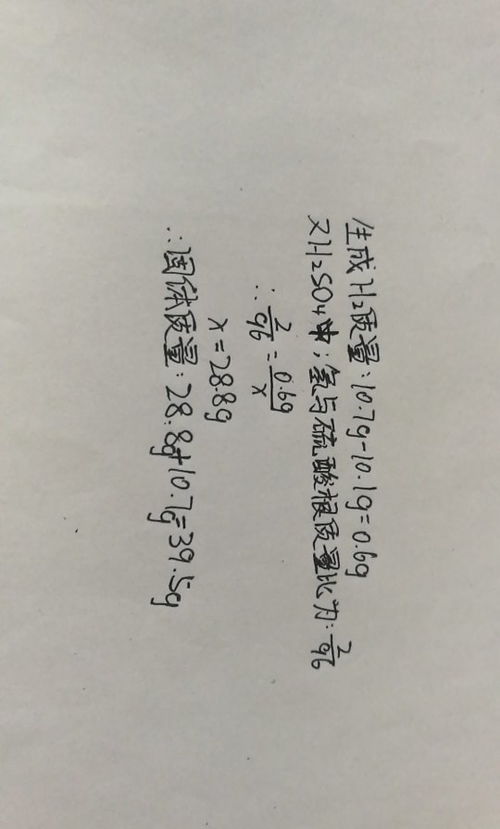 生成H₂质量:10.7g-10.1g=0.6g
又H₂SO₄中;氢与硫酸根质量比为:2/96
∴ 2/96 = 0.6g/x
x=28.8g
∴固体质量:28.8g+10.7g=39.5g